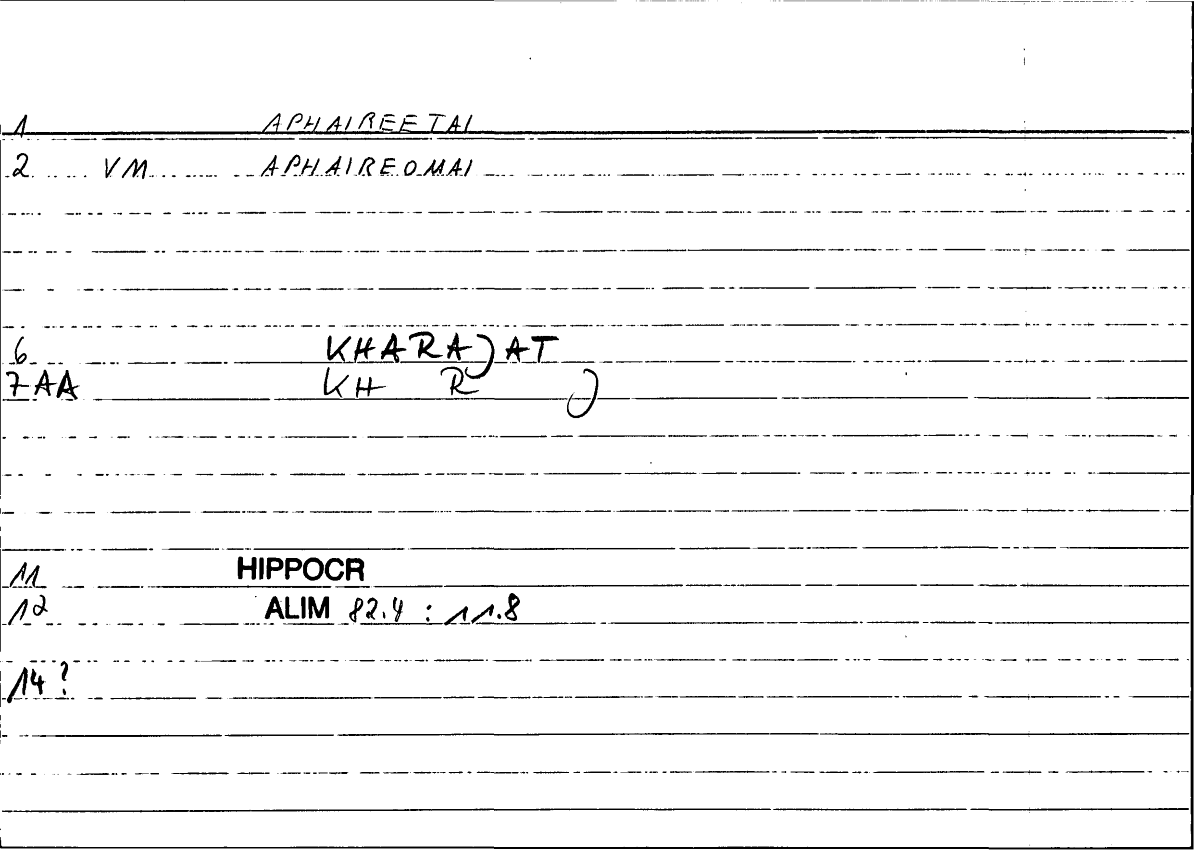 1 APHAIREETAI
2 VM APHAIREOMAI
6 KHARAJAT
7AA KH R J
11 HIPPOCR
12 ALIM 82.4 : 11.8
14 ?